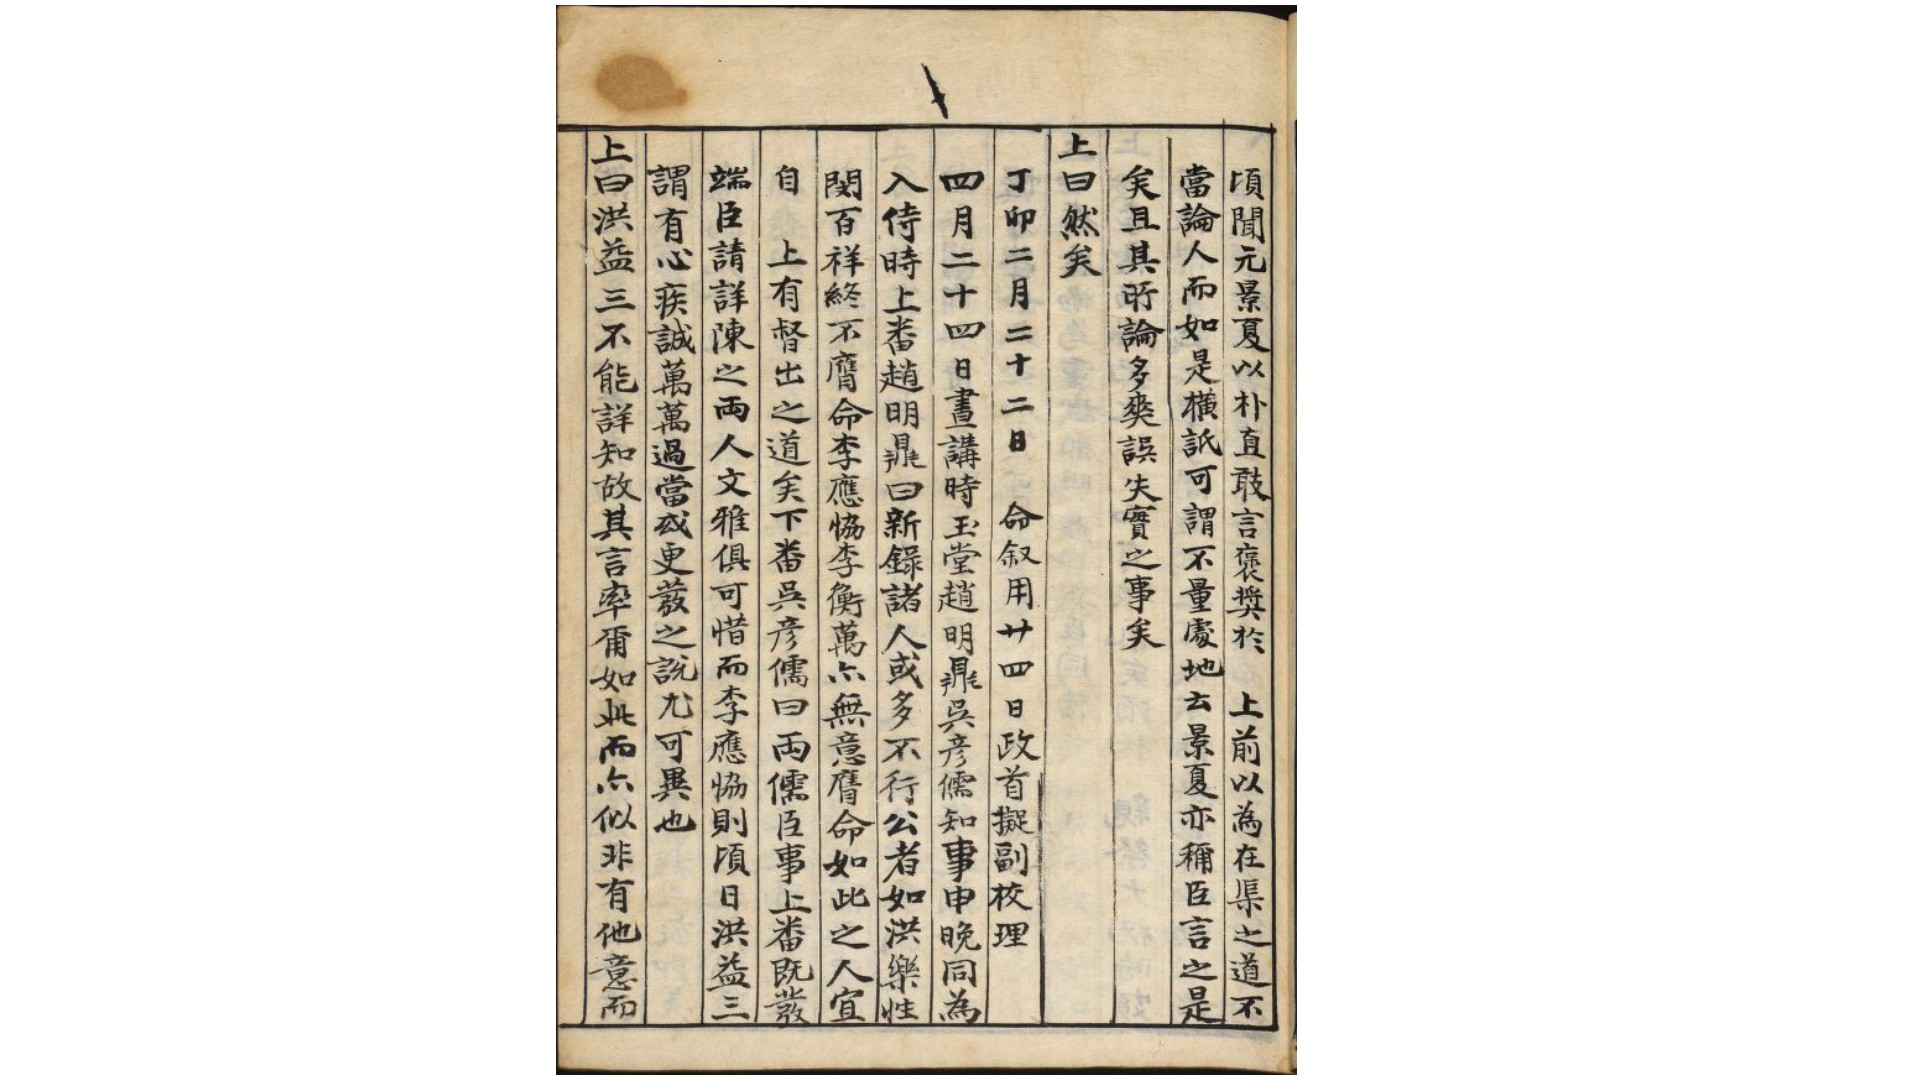 頃聞元景夏以朴直敢言褒奬於　上前以為在渠之道不
當論人而如是橫詆可謂不量處地云景夏亦稱臣言之是
矣且其所論多爽誤失實之事矣
上曰然矣
丁卯二月二十二日　命叙用廿四日政首擬副校理
四月二十四日晝講時玉堂趙明鼎吳彦儒知事申晩同為
入侍時上番趙明鼎曰新錄諸人或多不行公者如洪樂性
閔百祥終不膺命李應恊李衡萬亦無意膺命如此之人宜
自　上有督出之道矣下番吳彦儒曰兩儒臣事上番旣發
端臣請詳陳之兩人文雅俱可惜而李應恊則頃日洪益三
謂有心疾誠萬萬過當或更發之說尤可異也
上曰洪益三不能詳知故其言率爾如此而亦似非有他意而